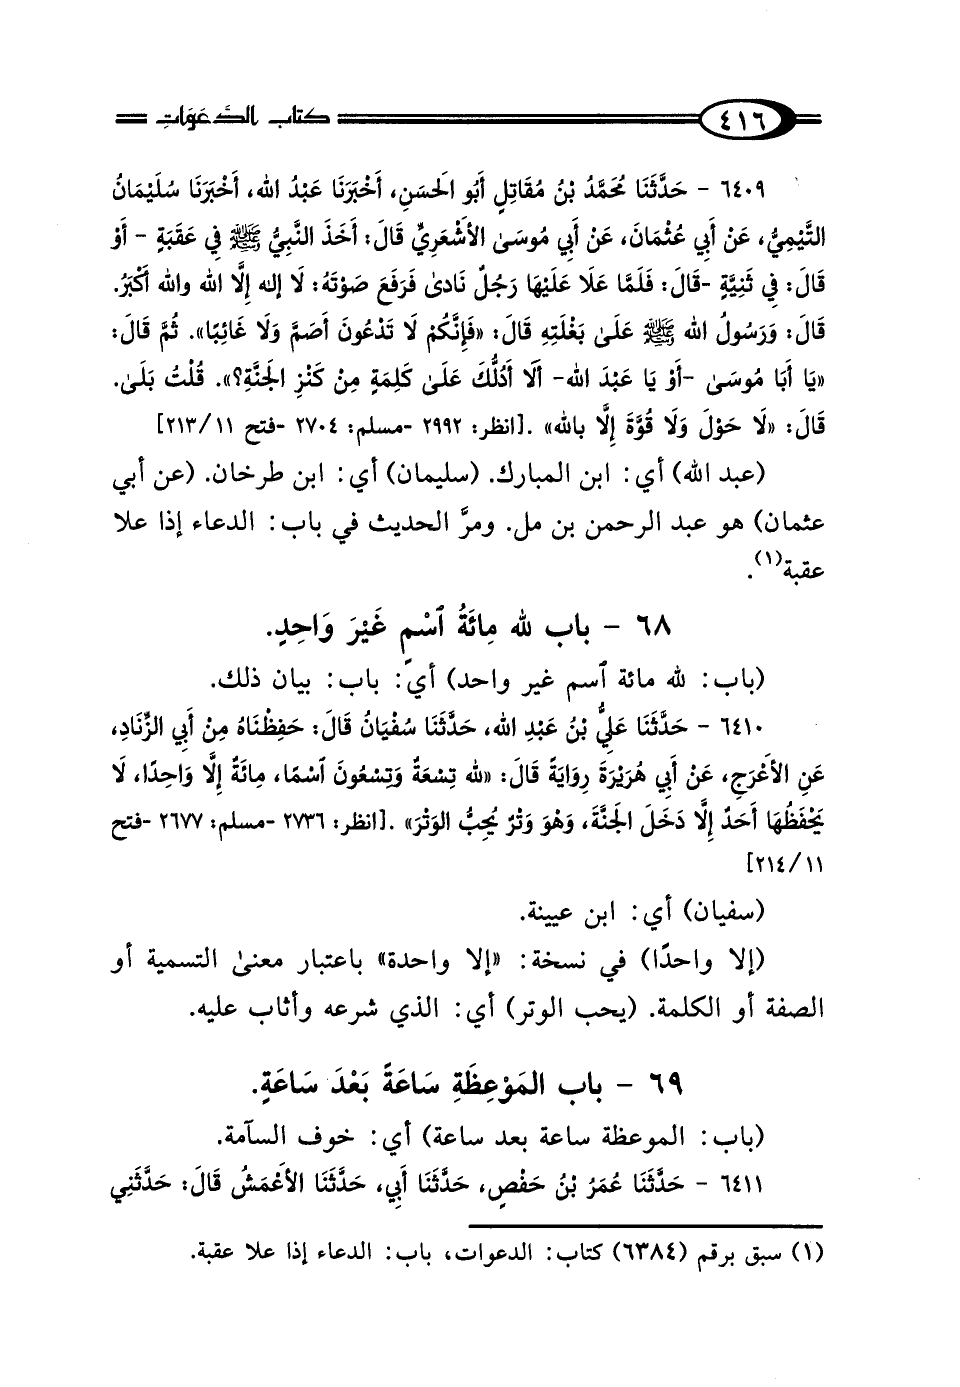 ٤١٦ كتاب الدعوات
٦٤٠٩ - حَدَّثَنَا مُحَمَّدُ بْنُ مُقَاتِلٍ أَبُو الَحسَنِ، أَخْبَرَنَا عَبْدُ الله، أَخْبَرَنَا سُلَيْمَانُ
التَّيْمِيُّ، عَنْ أَبِي عُثْمَانَ، عَنْ أَبِي مُوسَىٰ الأَشْعَرِيِّ قَالَ: أَخَذَ النَّبِيُّ ﷺ فِي عَقَبَةٍ - أَوْ
قَالَ: فِي ثَنِيَّةٍ -قَالَ: فَلَمَّا عَلَا عَلَيْهَا رَجُلٌ نَادىٰ فَرَفَعَ صَوْتَهُ: لَا إله إِلَّا الله والله أَكْبَرُ.
قَالَ: وَرَسُولُ الله ﷺ عَلَىٰ بَغْلَتِهِ قَالَ: «فَإِنَّكُمْ لَا تَدْعُونَ أَصَمَّ وَلَا غَائِبًا». ثُمَّ قَالَ:
«يَا أَبَا مُوسَىٰ -أَوْ يَا عَبْدَ الله- أَلَا أَدُلُّكَ عَلَىٰ كَلِمَةٍ مِنْ كَنْزِ الَجنَّةِ؟». قُلْتُ بَلَىٰ.
قَالَ: «لَا حَوْلَ وَلَا قُوَّةَ إِلَّا بالله» .[انظر: ٢٩٩٢ -مسلم: ٢٧٠٤ -فتح ١١/ ٢١٣]
(عبد الله) أي: ابن المبارك. (سليمان) أي: ابن طرخان. (عن أبي
عثمان) هو عبد الرحمن بن مل. ومرَّ الحديث في باب: الدعاء إذا علا
عقبة(١).
٦٨ - باب لله مِائَةُ ٱسْمٍ غَيْرَ وَاحِدٍ.
(باب: لله مائة ٱسم غير واحد) أي: باب: بيان ذلك.
٦٤١٠ - حَدَّثَنَا عَلِيُّ بْنُ عَبْدِ الله، حَدَّثَنَا سُفْيَانُ قَالَ: حَفِظْنَاهُ مِنْ أَبِي الزِّنَادِ،
عَنِ الأَعْرَجِ، عَنْ أَبِي هُرَيْرَةَ رِوَايَةً قَالَ: «لله تِسْعَةٌ وَتِسْعُونَ ٱسْمًا، مِائَةٌ إِلَّا وَاحِدًا، لَا
يَحْفَظُهَا أَحَدٌ إِلَّا دَخَلَ الَجنَّةَ، وَهْوَ وَتْرٌ يُحِبُّ الوَتْرَ» .[انظر: ٢٧٣٦ -مسلم: ٢٦٧٧ -فتح
١١/ ٢١٤]
(سفيان) أي: ابن عيينة.
(إلا واحدًا) في نسخة: «إلا واحدة» باعتبار معنىٰ التسمية أو
الصفة أو الكلمة. (يحب الوتر) أي: الذي شرعه وأثاب عليه.
٦٩ - باب المَوْعِظَةِ سَاعَةً بَعْدَ سَاعَةٍ.
(باب: الموعظة ساعة بعد ساعة) أي: خوف السآمة.
٦٤١١ - حَدَّثَنَا عُمَرُ بْنُ حَفْصٍ، حَدَّثَنَا أَبِي، حَدَّثَنَا الأَعْمَشُ قَالَ: حَدَّثَنِي
(١) سبق برقم (٦٣٨٤) كتاب: الدعوات، باب: الدعاء إذا علا عقبة.